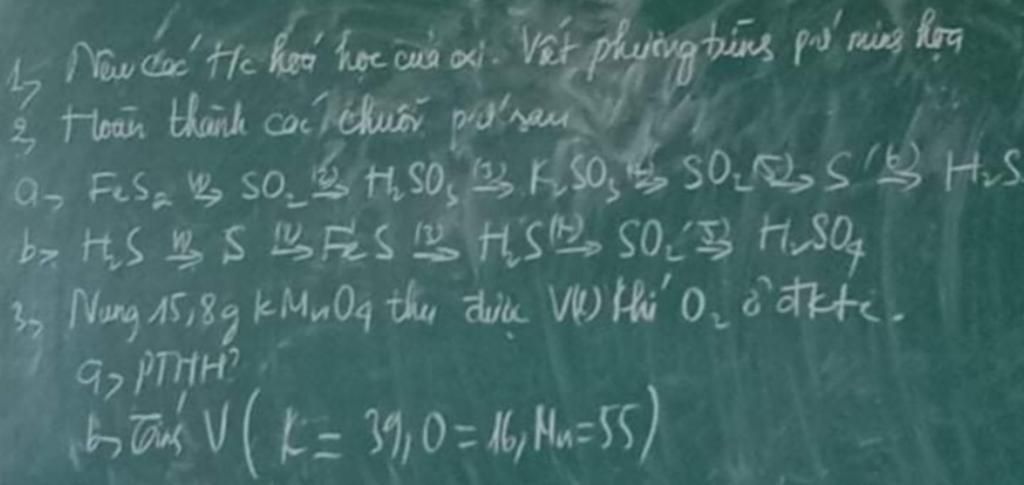 1, Nêu các t/c hoá học của oxi. Viết phương trình pứ minh họa
2, Hoàn thành các chuỗi pứ sau
a, FeS₂ (1)→ SO₂ (2)→ H₂SO₃ (3)→ K₂SO₃ (4)→ SO₂ (5)→ S (6)→ H₂S
b, H₂S (1)→ S (2)→ FeS (3)→ H₂S (4)→ SO₂ (5)→ H₂SO₄
3, Nung 15,8g KMnO₄ thu được V(l) khí O₂ ở đktc.
a, PTHH?
b, Tính V (K = 39, O = 16, Mn = 55)